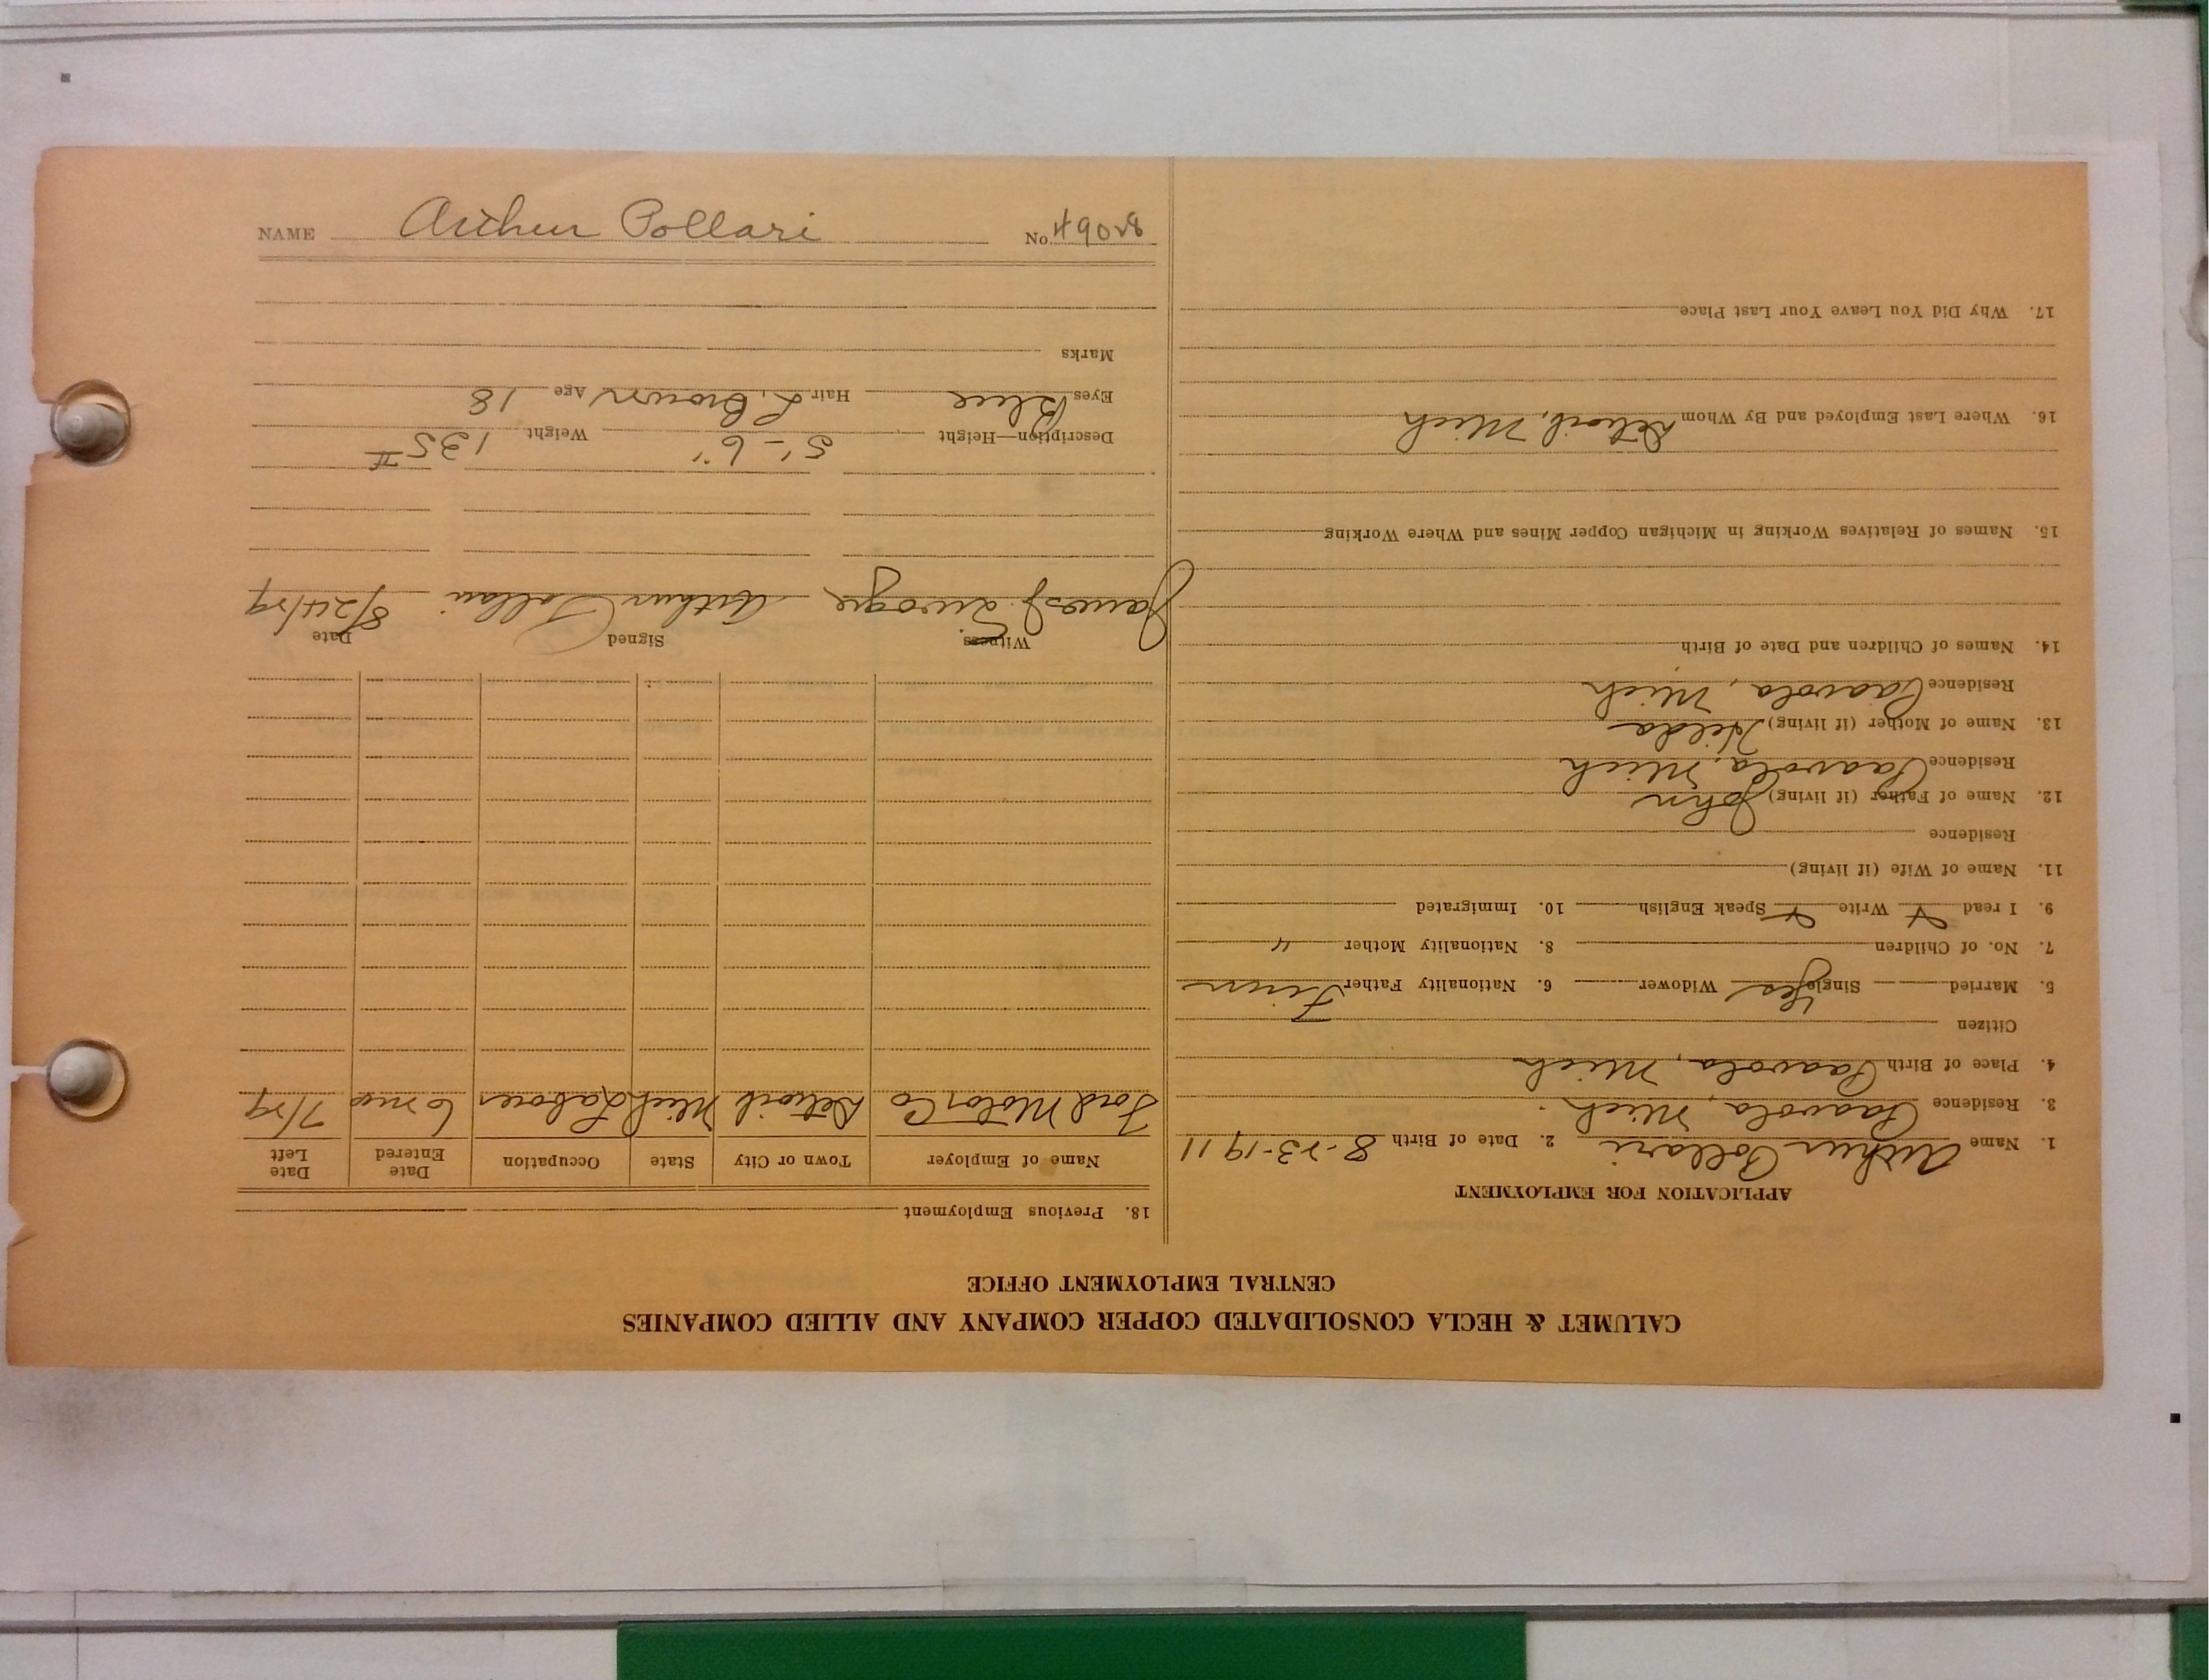 CALUMET & HECLA CONSOLIDATED COPPER COMPANY AND ALLIED COMPANIES
CENTRAL EMPLOYMENT OFFICE
APPLICATION FOR EMPLOYMENT
1. Name Arthur Pollari 2. Date of Birth 8-23-1911
3. Residence Paavola, Mich.
4. Place of Birth Paavola, Mich
Citizen
5. Married Single Yes Widower 6. Nationality Father Finn
7. No. of Children 8. Nationality Mother "
9. I read Write Speak English 10. Immigrated
11. Name of Wife (if living)
Residence
12. Name of Father (if living) John
Residence Paavola, Mich
13. Name of Mother (if living) Hilda
Residence Paavola, Mich
14. Names of Children and Date of Birth
15. Names of Relatives Working in Michigan Copper Mines and Where Working
16. Where Last Employed and By Whom Detroit, Mich
17. Why Did You Leave Your Last Place
18. Previous Employment
Name of Employer Town or City State Occupation Date Entered Date Left
Ford Motor Co Detroit Mich Laborer 6 mos 7/29
Witness Signed Date
James J. Arthur Pollari 8/24/29
Description—Height 5'-6" Weight 135 #
Eyes Blue Hair L. Brown Age 18
Marks
NAME Arthur Pollari No. 49028